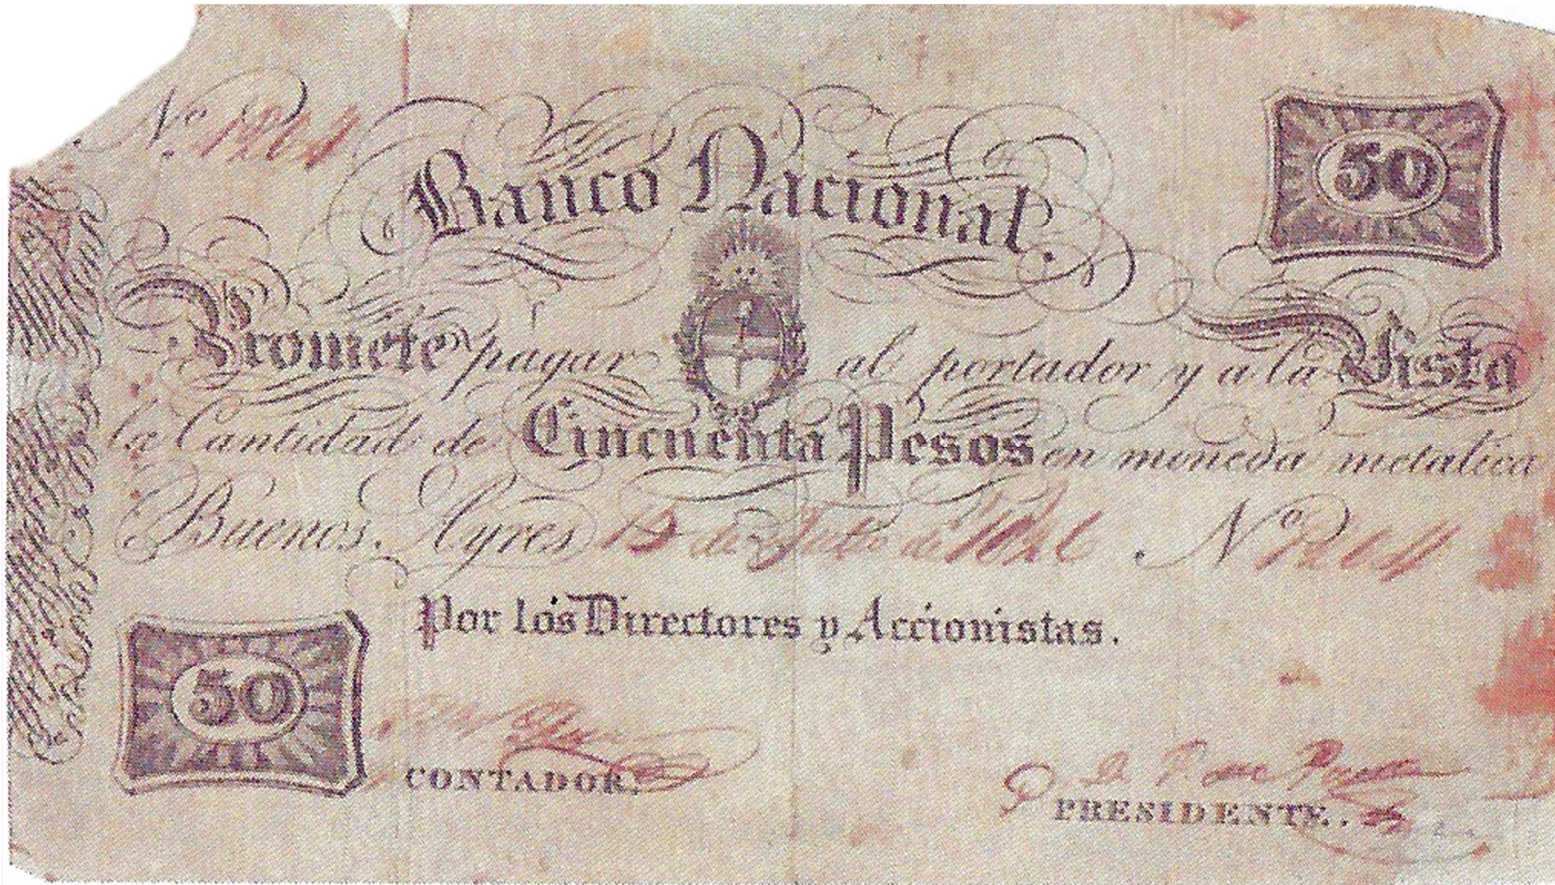 Nº 1264
Banco Nacional.
50
Promete pagar al portador y a la Vista
la Cantidad de Cincuenta Pesos en moneda metalica
Buenos Ayres 15 de Julio de 1826 Nº 1264
Por los Directores y Accionistas.
50
CONTADOR.
PRESIDENTE.